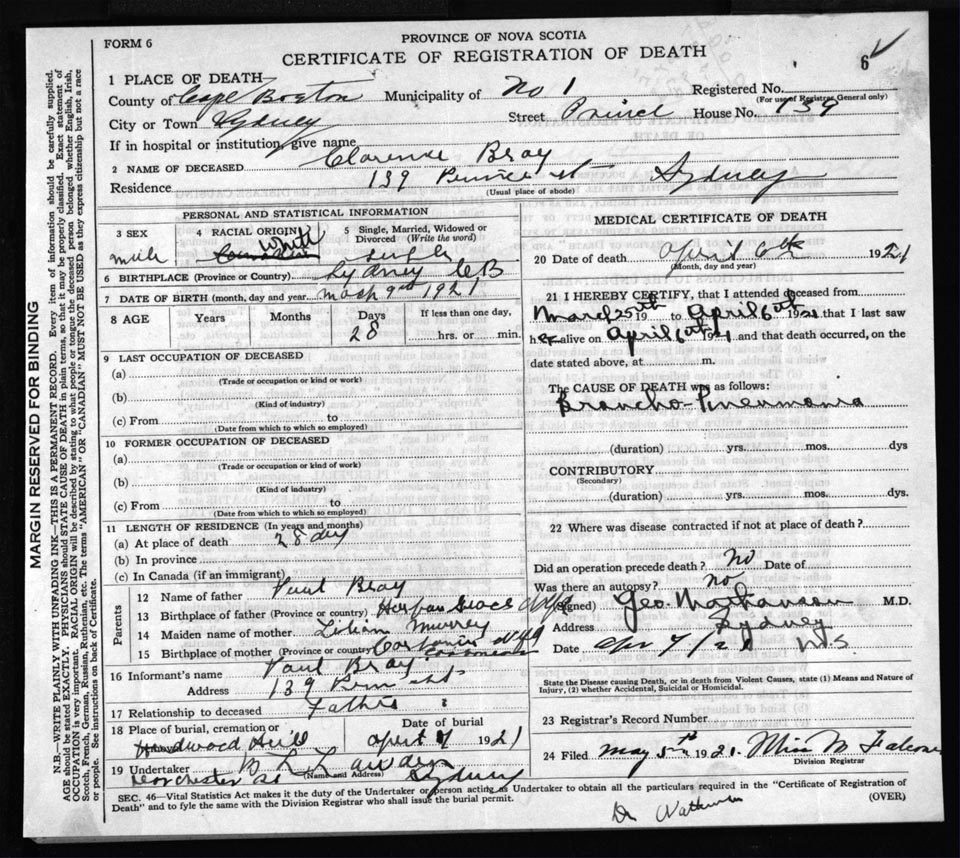 PROVINCE OF NOVA SCOTIA
FORM 6
CERTIFICATE OF REGISTRATION OF DEATH
6
1 PLACE OF DEATH
County of Cape Breton Municipality of No 1 Registered No.
(For use of Registrar General only)
City or Town Sydney Street Prince House No. 139
If in hospital or institution, give name
2 NAME OF DECEASED Clarence Bray
Residence 139 Prince st Sydney
(Usual place of abode)
PERSONAL AND STATISTICAL INFORMATION
3 SEX
male
4 RACIAL ORIGIN
White
5 Single, Married, Widowed or Divorced (Write the word)
single
6 BIRTHPLACE (Province or Country) Sydney CB
7 DATE OF BIRTH (month, day and year) 9th 1921
8 AGE Years Months Days If less than one day,
28 hrs. or min.
9 LAST OCCUPATION OF DECEASED
(a)
(Trade or occupation or kind or work)
(b)
(Kind of industry)
(c) From to
(Date from which to which so employed)
10 FORMER OCCUPATION OF DECEASED
(a)
(Trade or occupation or kind of work)
(b)
(Kind of industry)
(c) From to
(Date from which to which so employed)
11 LENGTH OF RESIDENCE (In years and months)
(a) At place of death 28 day
(b) In province
(c) In Canada (if an immigrant)
Parents
12 Name of father Paul Bray
13 Birthplace of father (Province or country)
14 Maiden name of mother Lilian Murrey
15 Birthplace of mother (Province or country)
16 Informant's name Paul Bray
Address 139
17 Relationship to deceased Father
18 Place of burial, cremation or Date of burial
Hardwood Hill April 7 1921
19 Undertaker
(Name and Address)
Dorchester St Sydney
MEDICAL CERTIFICATE OF DEATH
20 Date of death April 6th 1921
(Month, day and year)
21 I HEREBY CERTIFY, that I attended deceased from
March 25th 19 to April 6th 1921 that I last saw
h alive on April 6th 1921 and that death occurred, on the
date stated above, at m.
The CAUSE OF DEATH was as follows:
Broncho-Pneumonia
(duration) yrs. mos. dys
CONTRIBUTORY
(Secondary)
(duration) yrs. mos. dys.
22 Where was disease contracted if not at place of death?
Did an operation precede death? No Date of
Was there an autopsy? no
(Signed) Geo. M.D.
Address Sydney
Date Apr 7/21 N.S.
State the Disease causing Death, or in death from Violent Causes, state (1) Means and Nature of
Injury, (2) whether Accidental, Suicidal or Homicidal.
23 Registrar's Record Number
24 Filed May 5th 1921. Miss M
Division Registrar
SEC. 46—Vital Statistics Act makes it the duty of the Undertaker or person acting as Undertaker to obtain all the particulars required in the "Certificate of Registration of
Death" and to fyle the same with the Division Registrar who shall issue the burial permit.
(OVER)
Dr
MARGIN RESERVED FOR BINDING
N.B.—WRITE PLAINLY WITH UNFADING INK—THIS IS A PERMANENT RECORD. Every item of information should be carefully supplied.
AGE should be stated EXACTLY. PHYSICIANS should STATE CAUSE OF DEATH in plain terms, so that it may be properly classified. Exact statement of
OCCUPATION is very important. RACIAL ORIGIN will be described by stating to what people or tongue the deceased person belonged whether English, Irish,
Scotch, French, German, Russian, Ruthenian, etc. The terms "AMERICAN" OR "CANADIAN" MUST NOT BE USED as they express citizenship but not a race
or people. See instructions on back of Certificate.